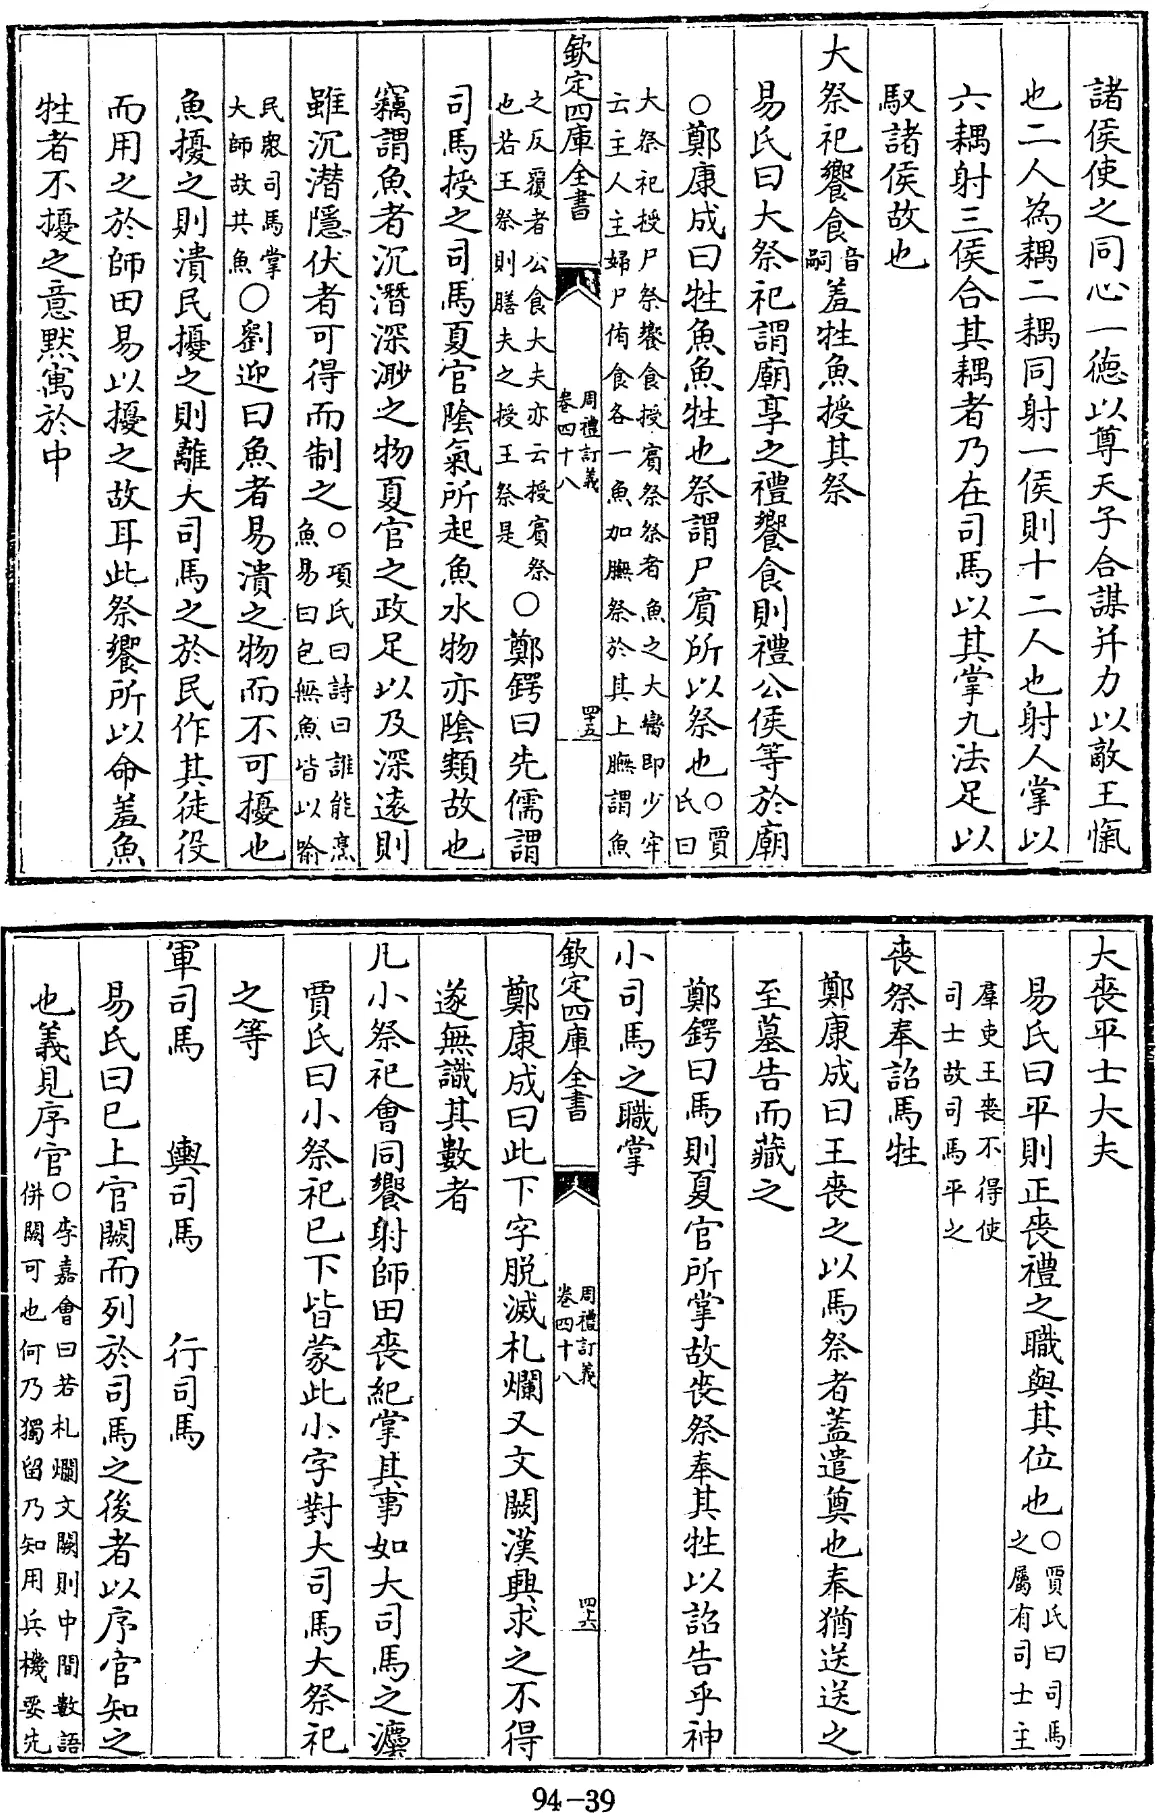 諸侯使之同心一德以尊天子合謀并力以敵王愾
也二人為耦二耦同射一侯則十二人也射人掌以
六耦射三侯合其耦者乃在司馬以其掌九法足以
馭諸侯故也
大祭祀饗食音嗣羞牲魚授其祭
易氏曰大祭祀謂廟享之禮饗食則禮公侯等於廟
○鄭康成曰牲魚魚牲也祭謂尸賓所以祭也○賈氏曰
大祭祀授尸祭饗食授賓祭祭者魚之大臠即少牢
云主人主婦尸侑食各一魚加膴祭於其上膴謂魚
欽定四庫全書 周禮訂義 卷四十八 四十五
之反覆者公食大夫亦云授賓祭
也若王祭則膳夫之授王祭是
○鄭鍔曰先儒謂
司馬授之司馬夏官陰氣所起魚水物亦陰類故也
竊謂魚者沉潛深渺之物夏官之政足以及深遠則
雖沉潛隱伏者可得而制之
○項氏曰詩曰誰能烹
魚易曰包無魚皆以喻
民衆司馬掌
大師故共魚
○劉迎曰魚者易潰之物而不可擾也
魚擾之則潰民擾之則離大司馬之於民作其徒役
而用之於師田易以擾之故耳此祭饗所以命羞魚
牲者不擾之意默寓於中
大喪平士大夫
易氏曰平則正喪禮之職與其位也
○賈氏曰司馬
之屬有司士主
羣吏王喪不得使
司士故司馬平之
喪祭奉詔馬牲
鄭康成曰王喪之以馬祭者蓋遣奠也奉猶送送之
至墓告而藏之
鄭鍔曰馬則夏官所掌故喪祭奉其牲以詔告乎神
小司馬之職掌
欽定四庫全書 周禮訂義 卷四十八 四十六
鄭康成曰此下字脫滅札爛又文闕漢興求之不得
遂無識其數者
凡小祭祀會同饗射師田喪紀掌其事如大司馬之灋
賈氏曰小祭祀已下皆蒙此小字對大司馬大祭祀
之等
軍司馬 輿司馬 行司馬
易氏曰已上官闕而列於司馬之後者以序官知之
也義見序官
○李嘉會曰若札爛文闕則中間數語
併闕可也何乃獨留乃知用兵機要先
94-39